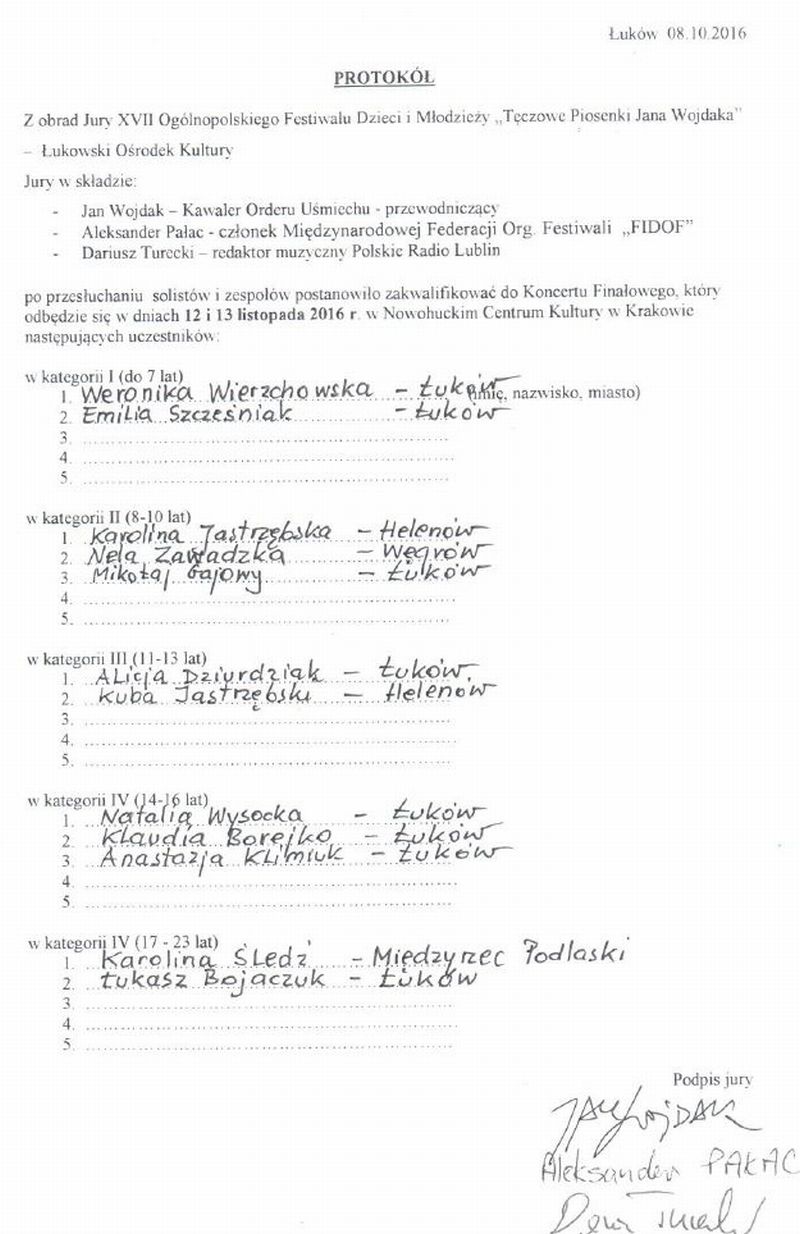 Łuków 08.10.2016
PROTOKÓŁ
Z obrad Jury XVII Ogólnopolskiego Festiwalu Dzieci i Młodzieży „Tęczowe Piosenki Jana Wojdaka”
– Łukowski Ośrodek Kultury
Jury w składzie:
- Jan Wojdak – Kawaler Orderu Uśmiechu - przewodniczący
- Aleksander Pałac - członek Międzynarodowej Federacji Org. Festiwali „FIDOF”
- Dariusz Turecki – redaktor muzyczny Polskie Radio Lublin
po przesłuchaniu solistów i zespołów postanowiło zakwalifikować do Koncertu Finałowego, który
odbędzie się w dniach 12 i 13 listopada 2016 r. w Nowohuckim Centrum Kultury w Krakowie
następujących uczestników:
w kategorii I (do 7 lat)
1. Weronika Wierzchowska – Łuków (imię, nazwisko, miasto)
2. Emilia Szcześniak – Łuków
3. ........................
4. ........................
5. ........................
w kategorii II (8-10 lat)
1. Karolina Jastrzębska – Helenów
2. Nela Zawadzka – Węgrów
3. Mikołaj Gajowy – Łuków
4. ........................
5. ........................
w kategorii III (11-13 lat)
1. Alicja Dziurdziak – Łuków
2. Kuba Jastrzębski – Helenów
3. ........................
4. ........................
5. ........................
w kategorii IV (14-16 lat)
1. Natalia Wysocka – Łuków
2. Klaudia Borejko – Łuków
3. Anastazja Klimiuk – Łuków
4. ........................
5. ........................
w kategorii IV (17 - 23 lat)
1. Karolina Śledź – Międzyrzec Podlaski
2. Łukasz Bojaczuk – Łuków
3. ........................
4. ........................
5. ........................
Podpis jury
Jan Wojdak
Aleksander PAŁAC